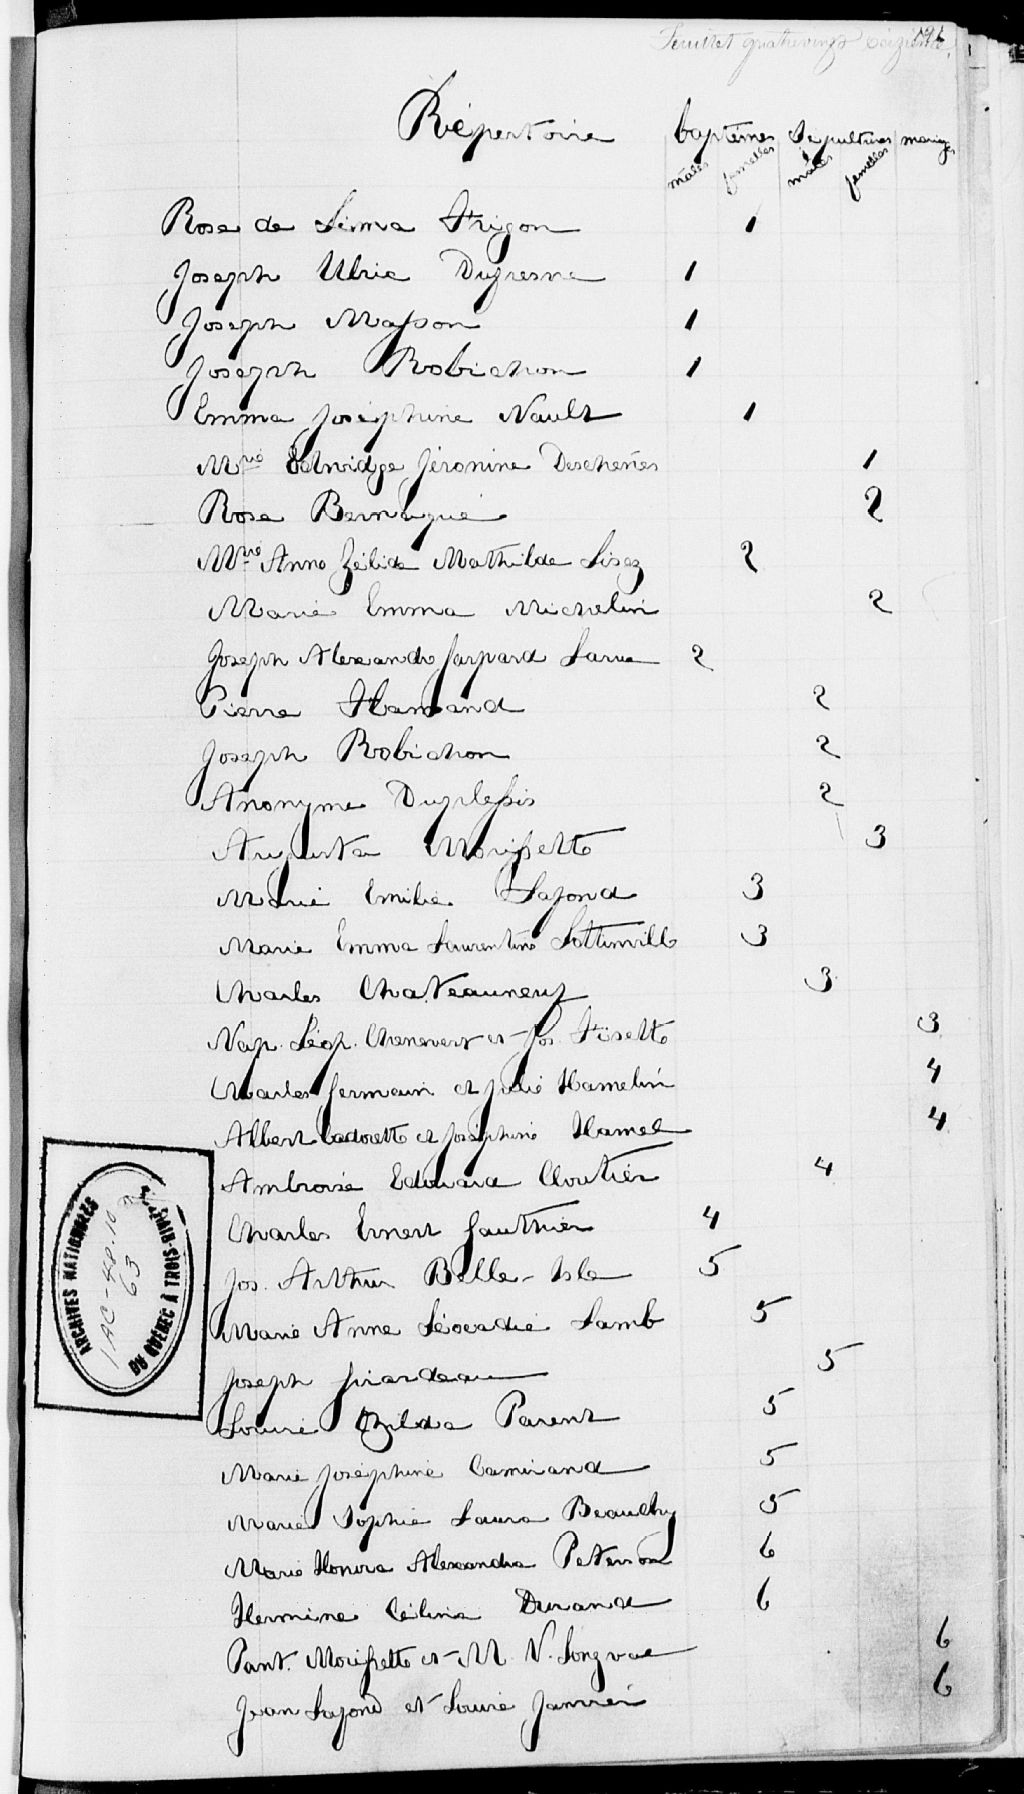 Feuillet quatrevingt seizième. 96
Répertoire baptêmes Sépultures mariages
mâles femelles mâles femelles
Rose de Lima Trigon 1
Joseph Ulric Dufresne 1
Joseph Masson 1
Joseph Robichon 1
Emma Joséphine Nault 1
Mrie Edwidge Jéronine Deschenes 1
Rose Bernaquié 2
Mrie Anne Zélide Mathilde Lisez 2
Marie Emma Michelin 2
Joseph Alexandre Gaspard Larue 2
Pierre Hamand 2
Joseph Robichon 2
Anonyme Duplessis 2
Augusta Morissette 3
Marie Emilie Lafond 3
Marie Emma Laurentine Lottinville 3
Charles Chateauneuf 3
Nap. Léop. Chenevert et Jos. Fisette 3
Charles Germain et Julie Hamelin 4
Albert Cadorette et Joséphine Hamel 4
Ambroise Edouard Cloutier 4
Charles Ernest Gauthier 4
Jos. Arthur Belle-Isle 5
Marie Anne Léocadie Lamb 5
Joseph Girardeau 5
Louise Exilda Parent 5
Marie Joséphine Camirand 5
Marie Sophie Laura Beaudry 5
Marie Honora Alexandra Peterson 6
Hermine Céline Durand 6
Pant. Morissette et M. V. Longval 6
Jean Lafond et Louise Janvier 6
ARCHIVES NATIONALES
DU QUÉBEC À TROIS-RIVIÈRES
1AC-48-10
63